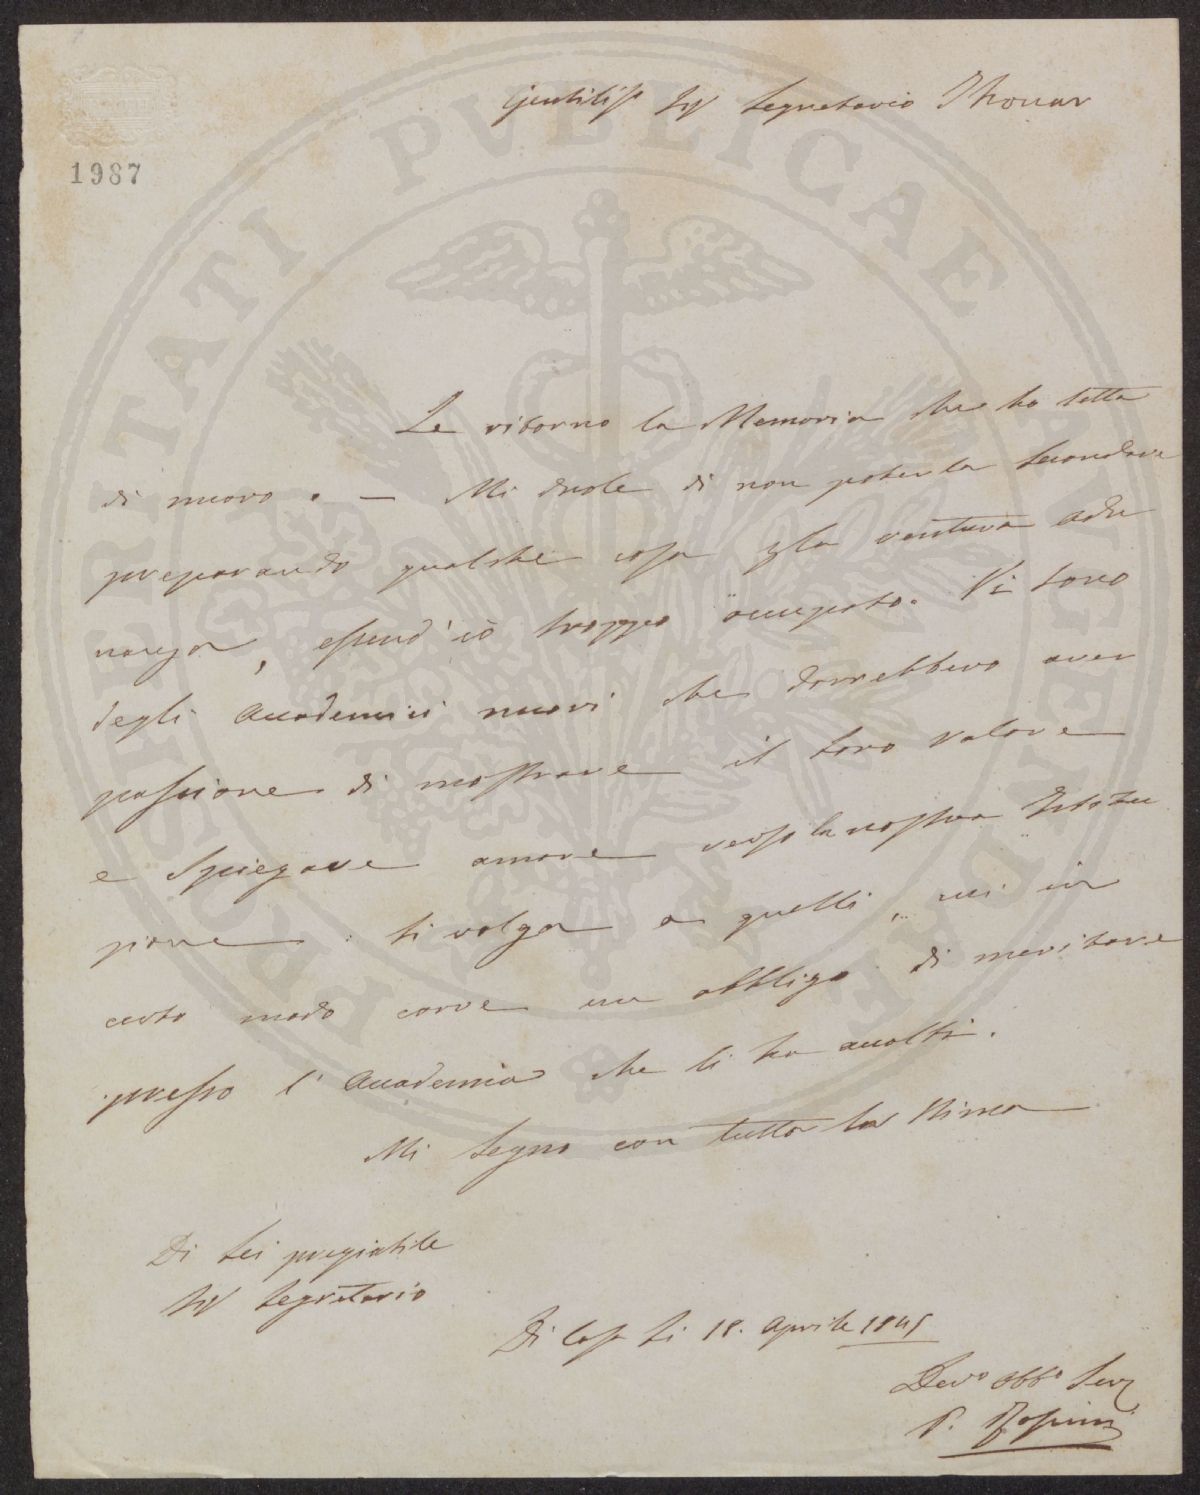 1987
Gentiliss. Sig. Segretario Thouar
Le ritorno la Memoria che ho letta
di nuovo. — Mi duole di non poterla secondare
preparando qualche cosa p la ventura Adu
nanza, essend'io troppo occupato. Vi sono
degli Accademici nuovi che dovrebbero aver
passione di mostrare il loro valore
e spiegare amore verso la nostra Istitu
zione: si volga a quelli, cui in
certo modo corre un obbligo di meritare
presso l'Accademia che li ha accolti.
Mi segno con tutta la stima
Di Lei pregiabile
Sig. Segretario
Di Casa li 18. Aprile 1845
Devo obbo Serv
P.
PROSPERITATI PVBLICAE AVGENDAE